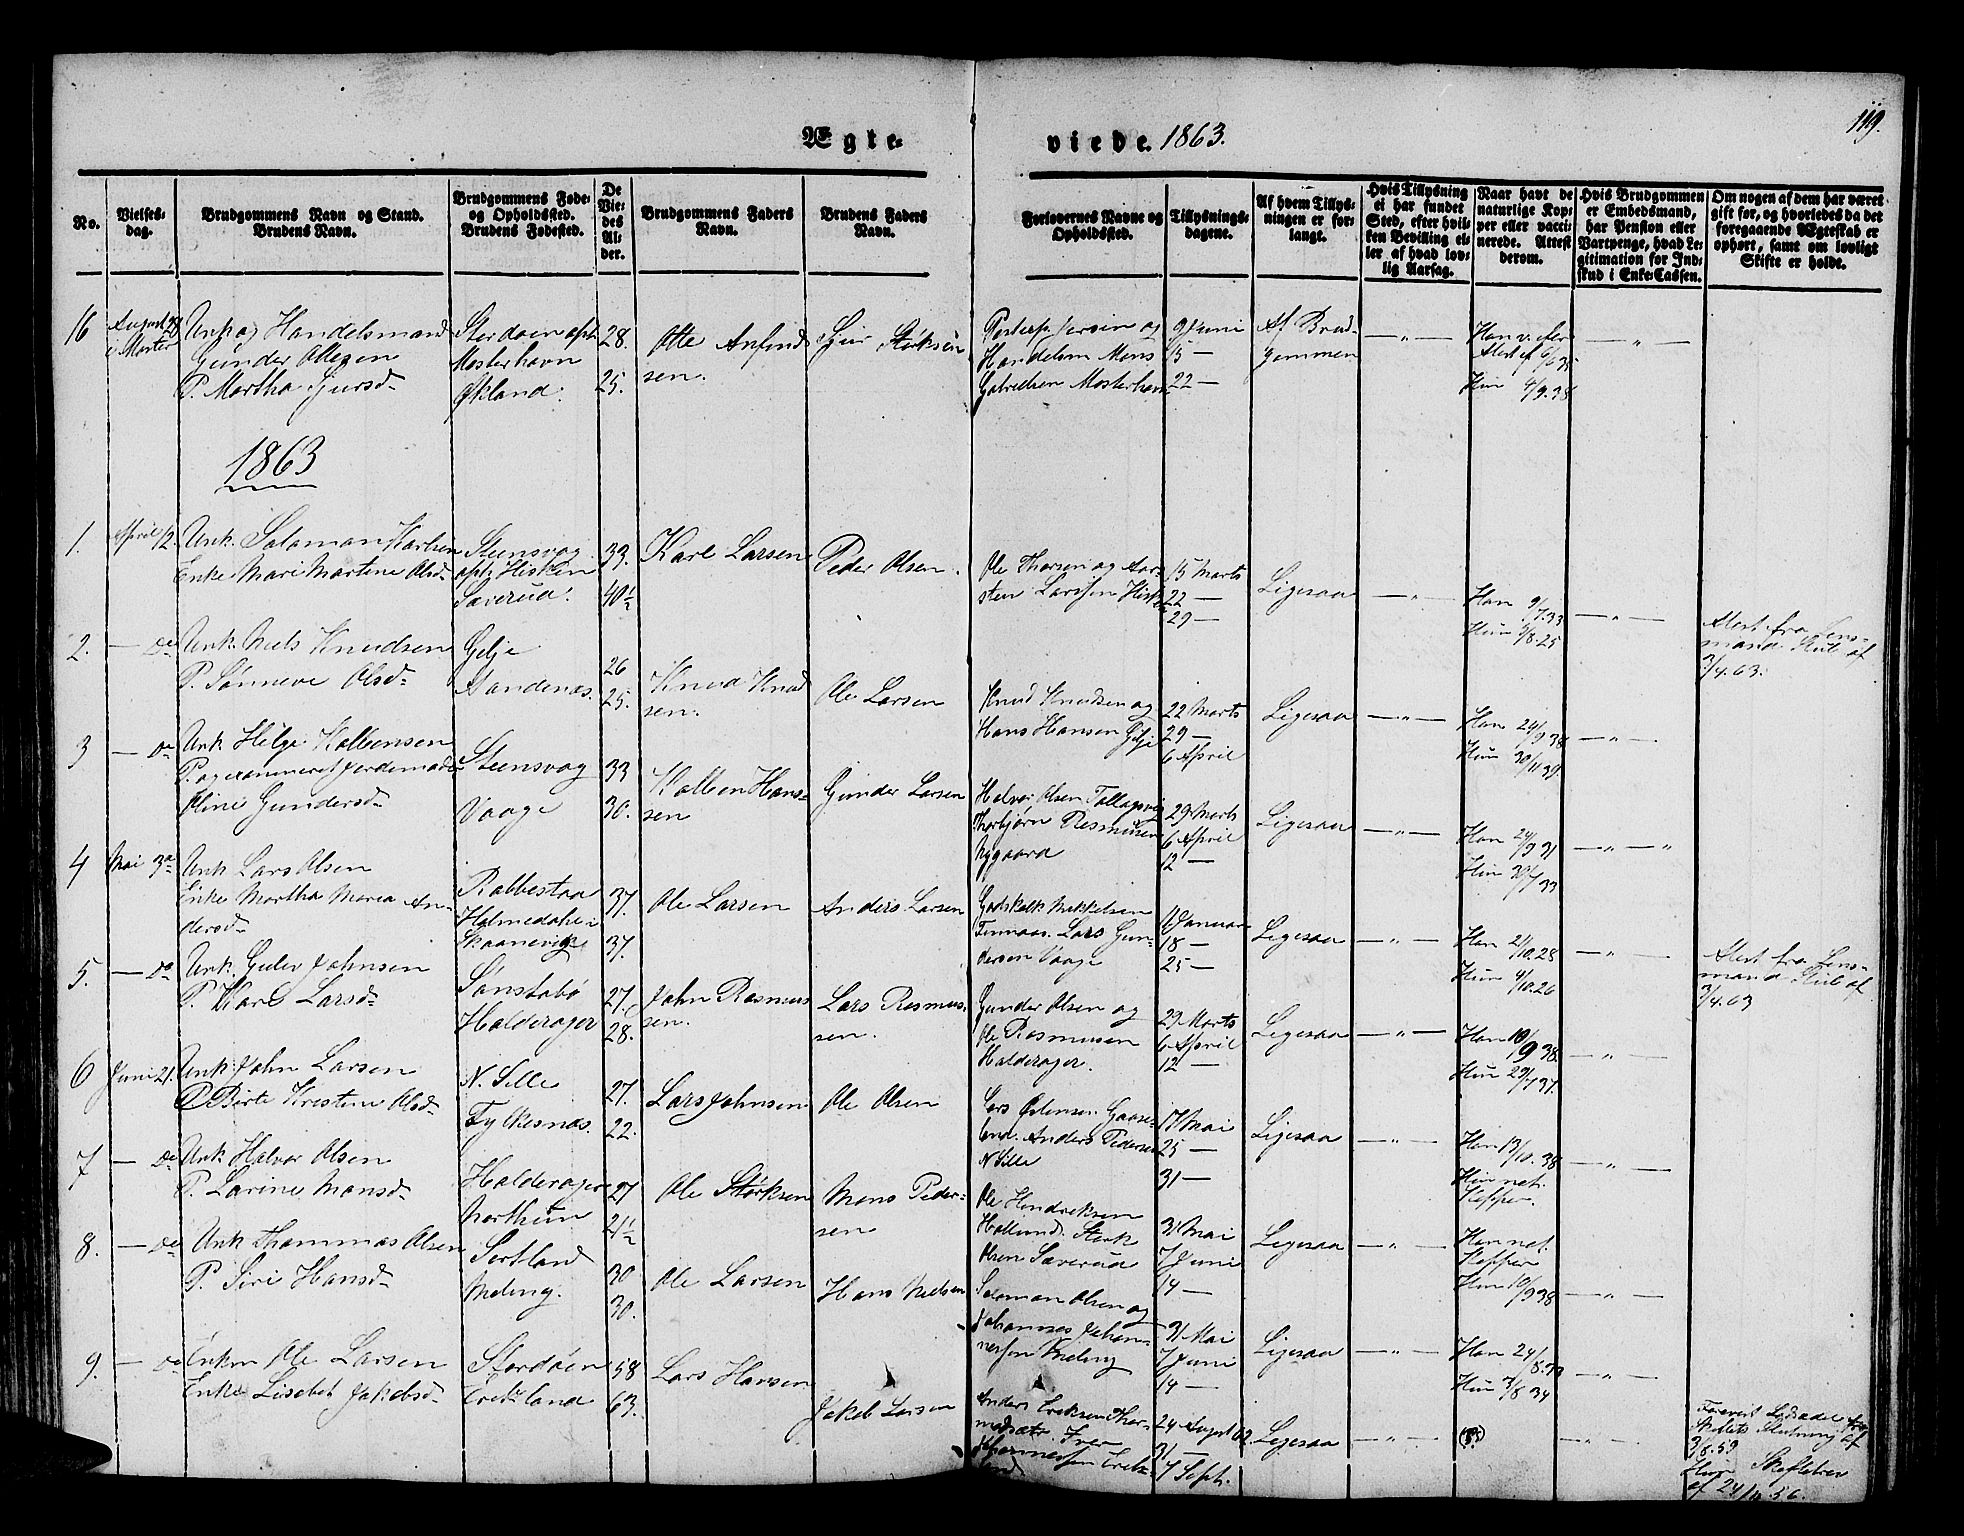 119.
Ægte-
viede. 1863.
No.
Vielses-
dag.
Brudgommens Navn og Stand.
Brudens Navn.
Brudgommens Føde-
og Opholdssted.
Brudens Fødested.
De
Vie-
des
Al-
der.
Brudgommens Faders
Navn.
Brudens Faders
Navn.
Forlovernes Navne og
Opholdssted.
Tillysnings-
dagene.
Af hvem Tillys-
ningen er for-
langt.
Hvis Tillysning
ei har fundet
Sted, efter hvil-
ken Bevilling el-
ler af hvad lov-
lig Aarsag.
Naar havt de
naturlige Kop-
per eller vacci-
nerede. Attest
derom.
Hvis Brudgommen
er Embedsmand,
har Pension eller
Vartpenge, hvad Le-
gitimation for Ind-
skud i Enke-Cassen.
Om nogen af dem har været
gift før, og hvorledes da det
foregaaende Ægteskab er
ophørt, samt om lovligt
Skifte er holdt.
16
August 28
i Moster
Unk og Handelsmand
Gunder Ottesen
P. Martha Gjursd.
Stordøen opt
Mosterhavn
Økland.
28.
25.
Otte Anfind
sen.
Gjur Størksen
Mons
Gabrielsen Mosterhavn
9 Juni
15 —
22 —
Af Brud-
gommen
— " —
Hun 4/9.38
— " —
1863
1.
April 12.
Unk. Salamon Karlsen
Enke Mari Martine Olsd.
Steensvag
opt Hisken
Saverud.
33.
40½
Karl Larsen
Peder Olsen.
Ole Thorsen og Aar-
sten Larssen Hisk
15 Marts
22 —
29 —
Ligesaa
— " —
Han 9/7.33
Hun 9/8.25
— " —
Attest fra Lens-
mand af
3/4.63.
2.
— do
Unk. Niels Knudsen
P. Sønneve Olsd.
Gilje
Sandenæs.
26
25.
Knud Knud
sen.
Ole Larsen
Knud Knudsen og
Hans Hansen Gilje
22 Marts
29 —
6 April
Ligesaa
— " —
Han 24/9 38
Hun 30/11 39.
— " —
3
— do
Unk. Helge Kolbensen
P. og examineret Jordemoder
Oline Gundersd.
Steensvag
Vaage
33
30.
Kolben Hans-
sen
Gunder Larsen
Halvor Olsen Tollagsvig
Thorbjørn Rasmusen
Nygaard
29 Marts
6 April
12 —
Ligesaa
— " —
Han 24/9 31
Hun 30/7 33
— " — "
4
Mai 3de
Unk. Lars Olsen
Enke Martha Maria An-
dersd.
Rabbestaa
Holmedahl i
Skaanevig
37.
37.
Ole Larsen
Anders Larsen
Godskalk Mikkelsen
Finnaas. Lars Gun-
dersen Vaage
11 Januar
18 —
25 —
Ligesaa
— " —
Han 21/10.28
Hun 4/10.26
— " —
Attest fra Lens-
mand af
3/4.63
5.
— do
Unk. Gulev Johnsen
P. Kari Larsd.
Sønstabø
Halderager
27.
28.
John Rasmus
sen.
Lars Rasmus-
sen.
Gunder Olsen og
Ole Rasmusen
Halderager.
29 Marts
6 April
12 —
Ligesaa
— " —
Han 10/9 38.
Hun 29/7 37.
— " —
6
Juni 21.
Unk. John Larsen
P. Birte Kristine Olsd.
N. Lille
Fykesnæs.
27.
22.
Lars Johnsen
Ole Olsen
Lars Østensen Gaase-
land. Anders Pedersen
N Lille
17 Mai
25 —
31 —
Ligesaa
— " —
Han 13/10.38
Hun nat.
Kopper.
— " —
7
— do
Unk. Halvor Olsen
P. Larine Monsd.
Halderager
Northun
27
21½
Ole Størksen
Mons Peder-
sen
Ole Hendriksen
Hollund. Størk
Olsen Saverud
31 Mai
7 Juni
14 —
Ligesaa
— " —
Han nat.
Kopper
Hun 10/9 38
— " —
8.
— do
Unk. Thommas Olsen
P. Siri Hansd.
Sortland
Meling.
30
30.
Ole Larsen
Hans Nielsen
Salamon Olsen og
Johannes Johan-
nessen Meling
31 Mai
7 Juni
14 —
Ligesaa
— " —
Han 24/8.33
Hun 3/8 34
— " —
9.
— do
Enkem. Ole Larsen
Enke Lisebet Jakobsd.
Stordøen
Erek-land
58
63.
Lars Hansen
Jakob Larsen
Anders Ereksen Thor-
modsæter. Iver
Johannessen Erek-
land
24 August 62
31 —
7 Sept.
Ligesaa
— " —
— " —
Skiftets Slutning af
3/8.59
Hun Skiftebrev
af 24/11.56.